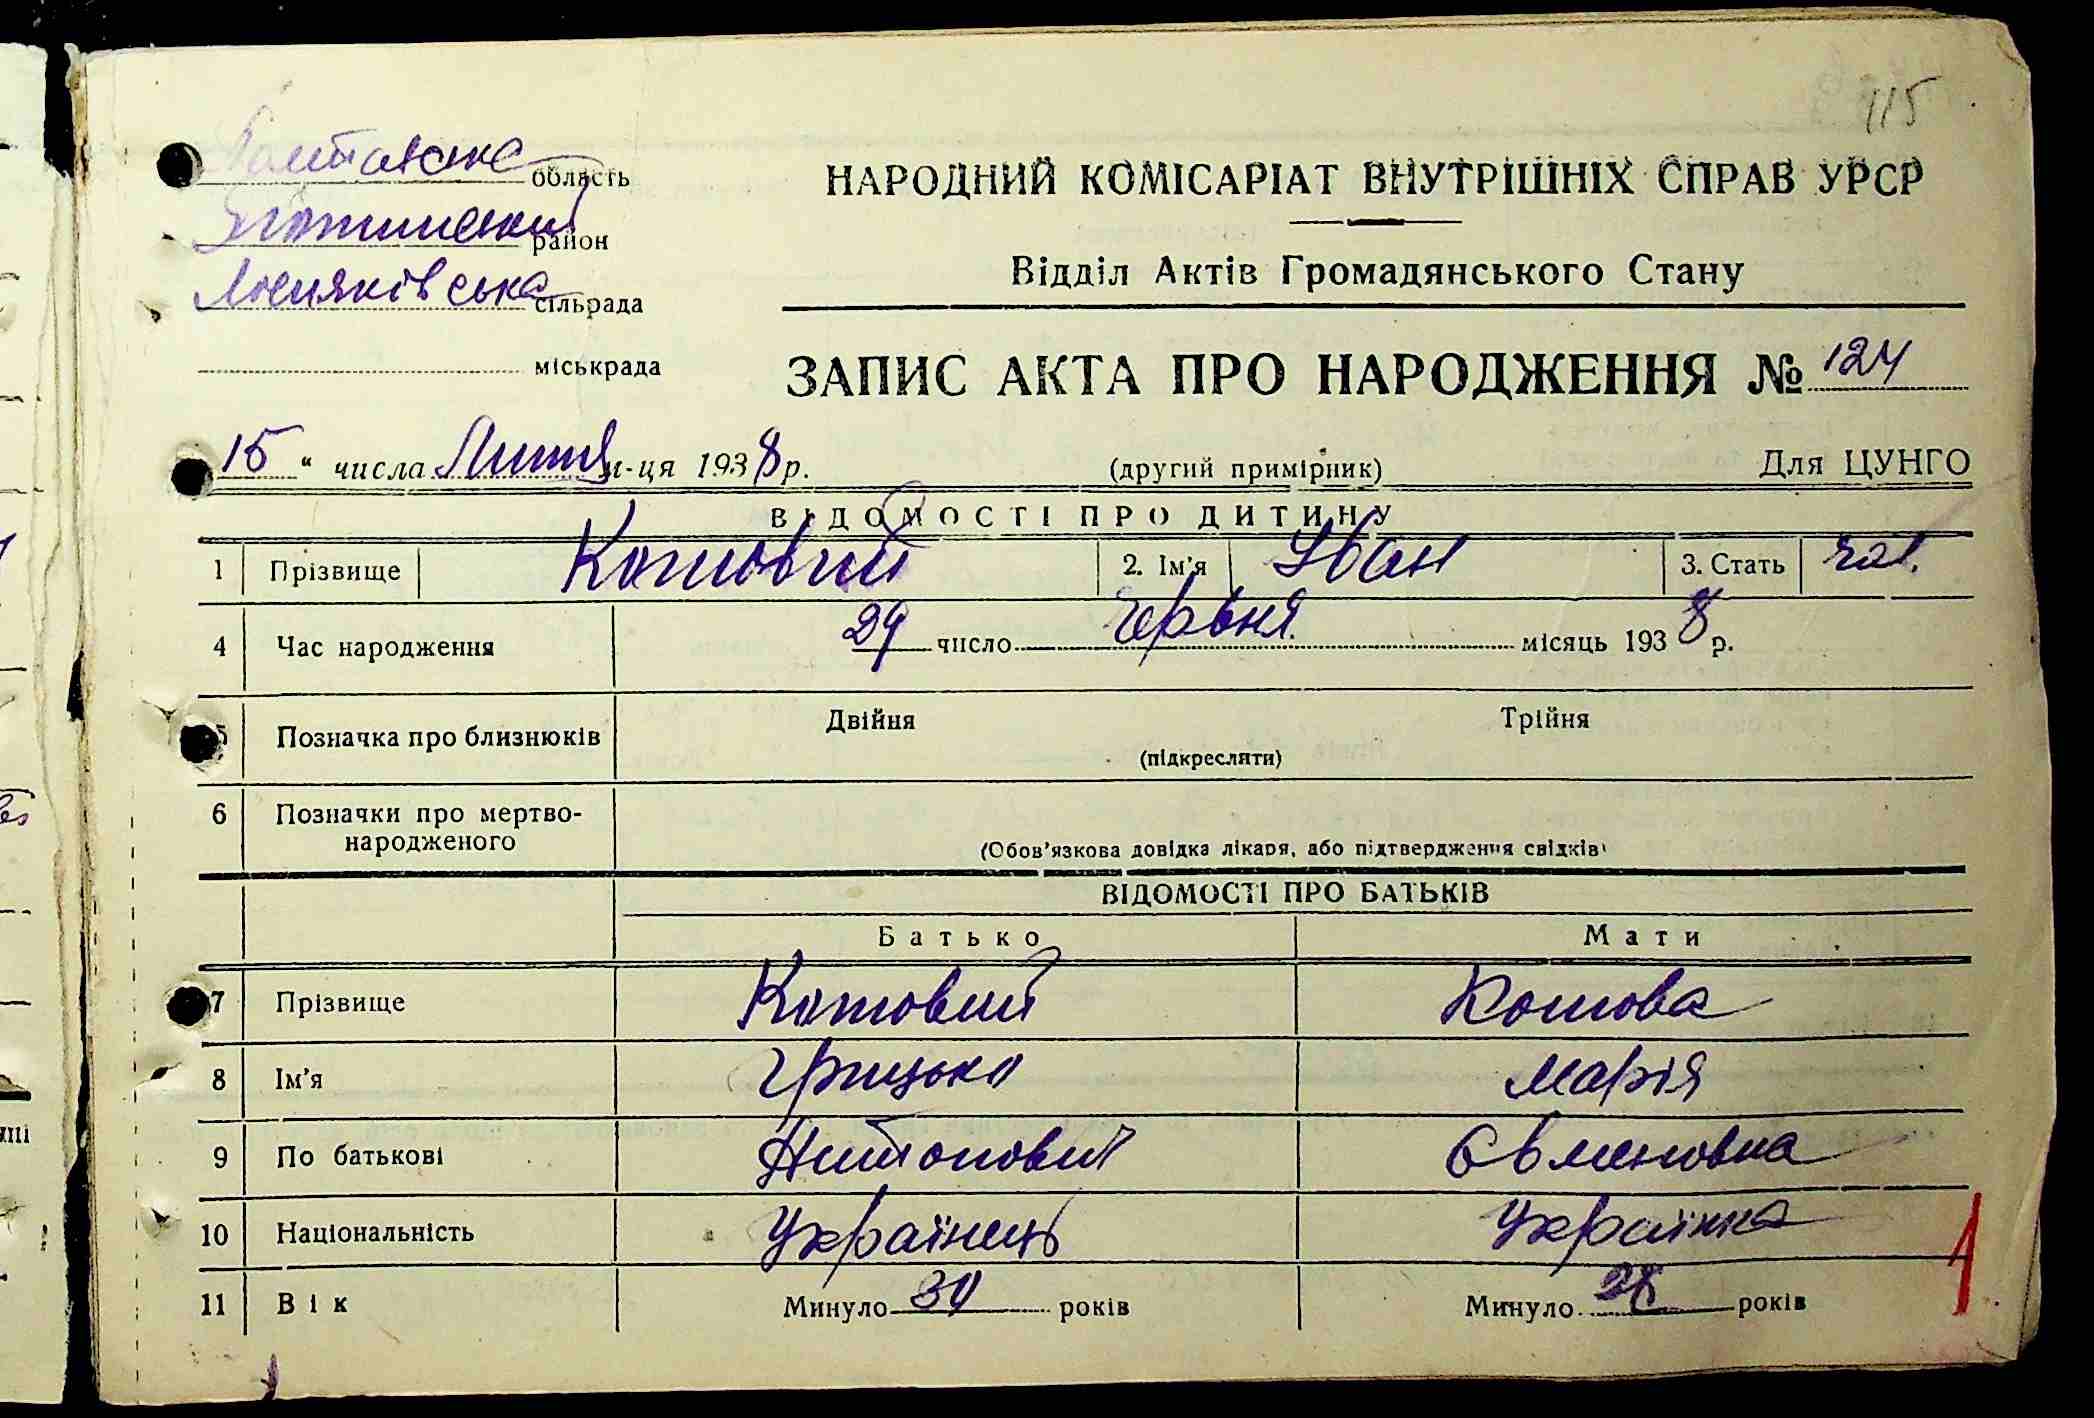 115
Полтавська область
Яготинський район
Лосняківська сільрада
міськрада
НАРОДНИЙ КОМІСАРІАТ ВНУТРІШНІХ СПРАВ УРСР
Відділ Актів Громадянського Стану
ЗАПИС АКТА ПРО НАРОДЖЕННЯ № 124
15 " числа Липня м-ця 1938 р. (другий примірник) Для ЦУНГО
ВІДОМОСТІ ПРО ДИТИНУ
1 Прізвище Котовий 2. Ім'я Іван 3. Стать чол.
4 Час народження 29 число Червня місяць 1938 р.
5 Позначка про близнюків Двійня Трійня
(підкресляти)
6 Позначки про мертво-
народженого
(Обов'язкова довідка лікаря, або підтвердження свідків)
ВІДОМОСТІ ПРО БАТЬКІВ
Батько Мати
7 Прізвище Котовий Котова
8 Ім'я Грицько Марія
9 По батькові Антонович Євменовна
10 Національність Українець Українка
11 Вік Минуло 30 років Минуло 28 років